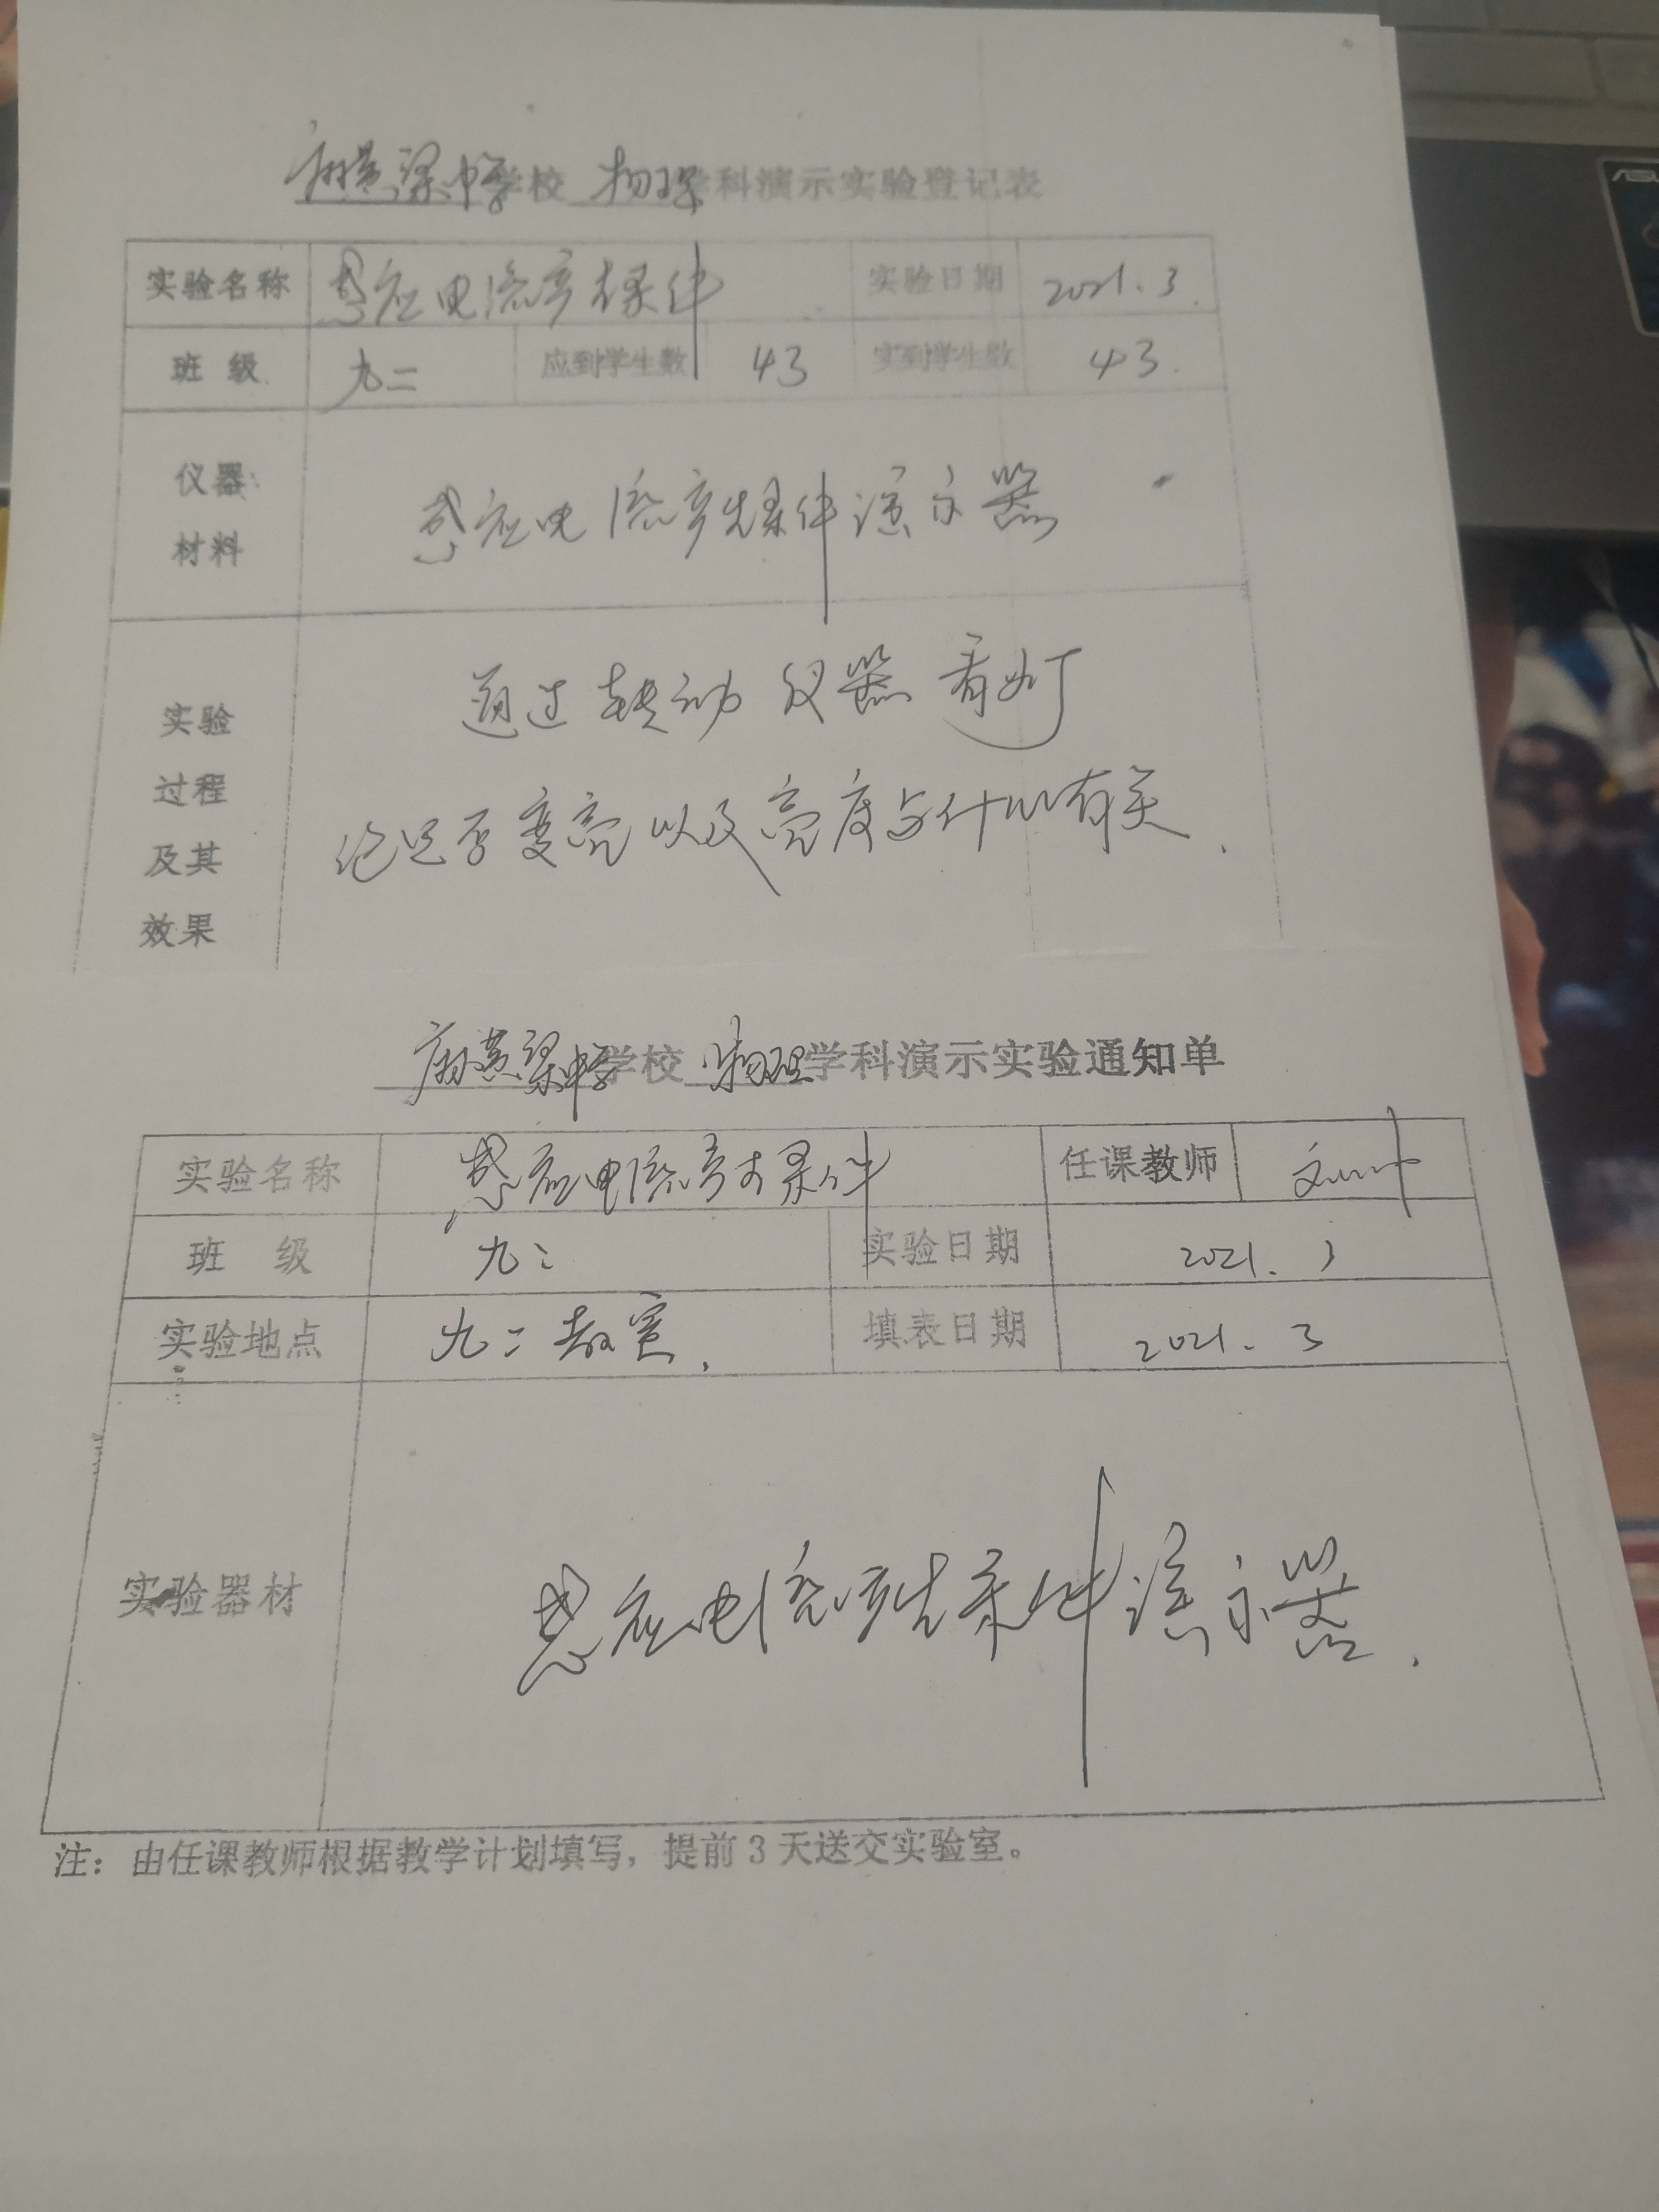 麻黄梁中学学校 物理学科演示实验登记表
实验名称 感应电流产生条件 实验日期 2021.3.
班 级 九二 应到学生数 43 实到学生数 43.
仪器: 材料 感应电流产生条件演示器
实验过程及其效果 通过转动仪器看灯
泡是否变亮以及亮度与什么有关.
麻黄梁中学学校 物理学科演示实验通知单
实验名称 感应电流产生条件 任课教师
班 级 九二 实验日期 2021.3
实验地点 九二教室. 填表日期 2021.3
实验器材 感应电流产生条件演示器.
注：由任课教师根据教学计划填写，提前3天送交实验室。
ASUS